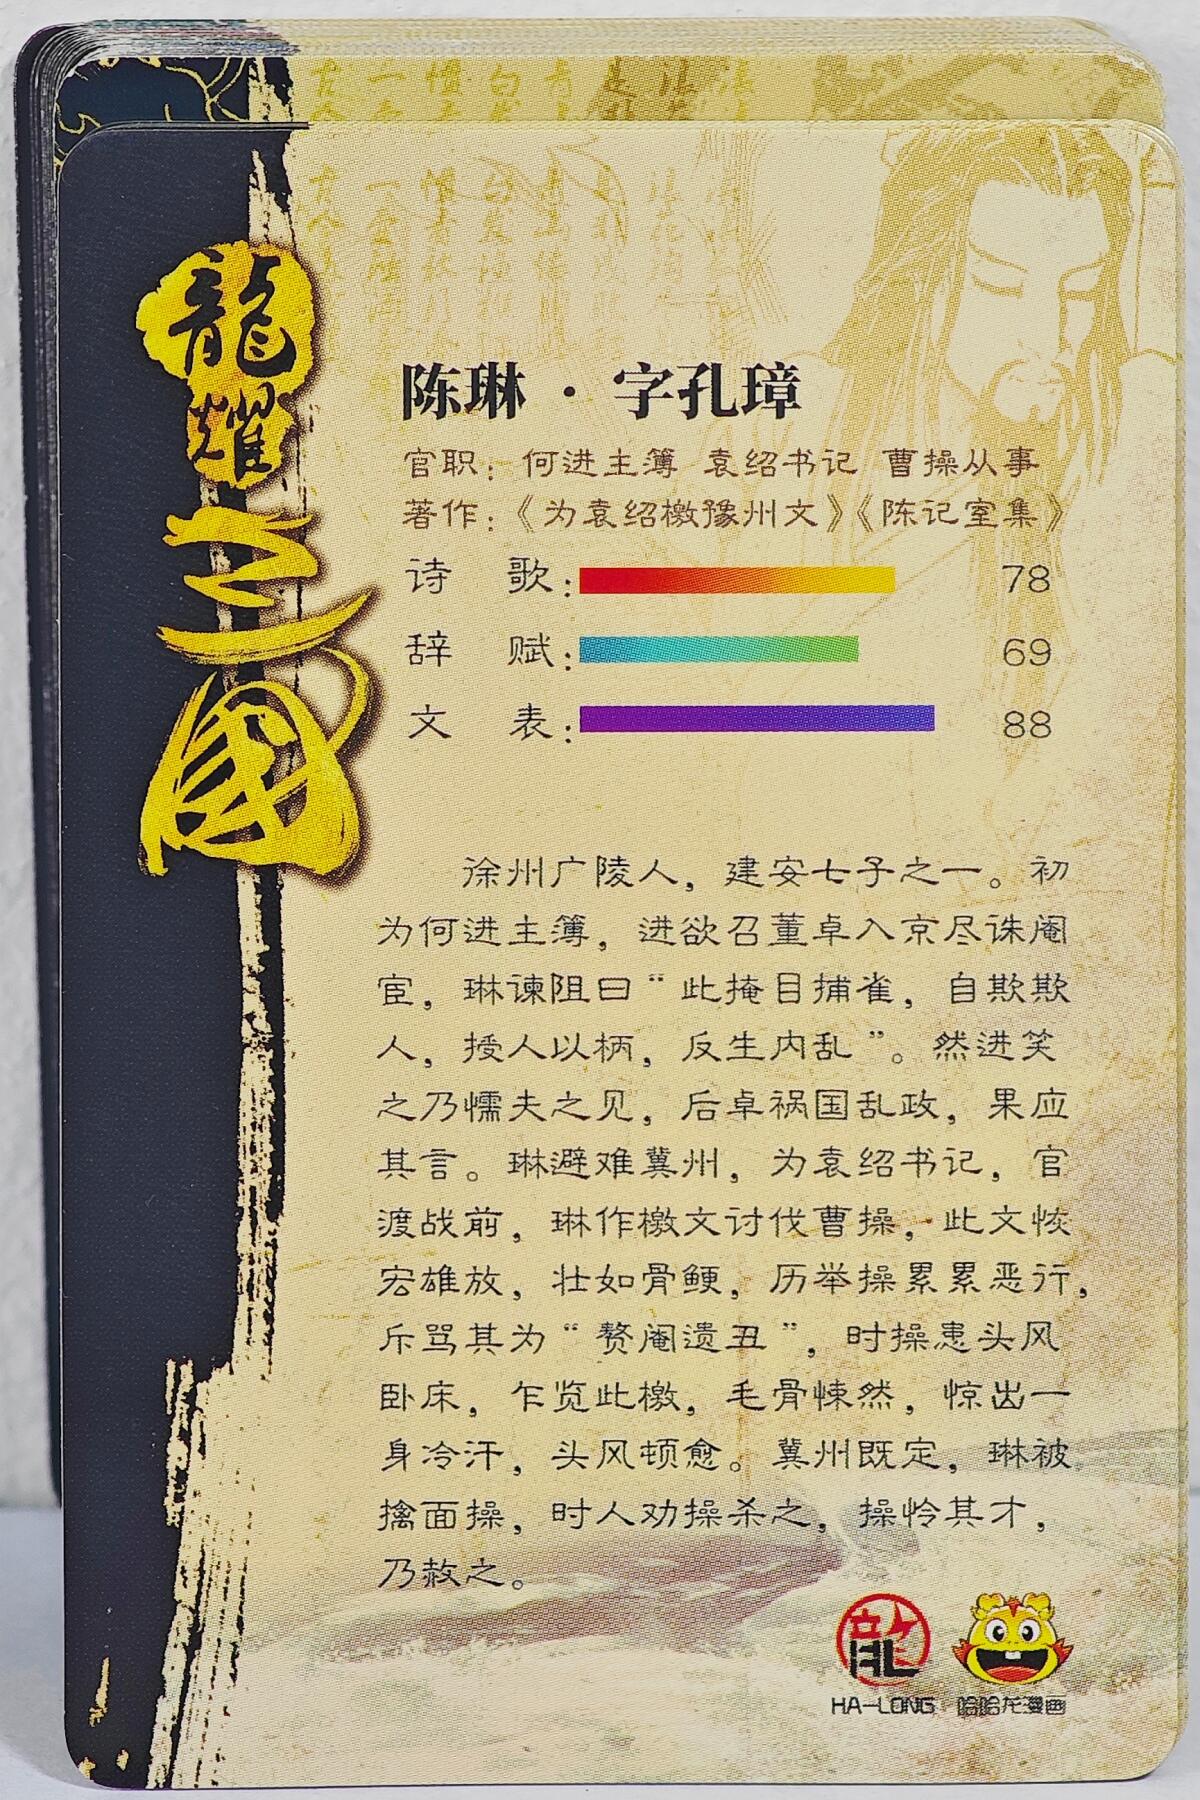 龍耀三國
陈琳·字孔璋
官职：何进主簿 袁绍书记 曹操从事
著作：《为袁绍檄豫州文》《陈记室集》
诗 歌： 78
辞 赋： 69
文 表： 88
徐州广陵人，建安七子之一。初
为何进主簿，进欲召董卓入京尽诛阉
宦，琳谏阻曰“此掩目捕雀，自欺欺
人，授人以柄，反生内乱”。然进笑
之乃懦夫之见，后卓祸国乱政，果应
其言。琳避难冀州，为袁绍书记，官
渡战前，琳作檄文讨伐曹操，此文恢
宏雄放，壮如骨鲠，历举操累累恶行，
斥骂其为“赘阉遗丑”，时操患头风
卧床，乍览此檄，毛骨悚然，惊出一
身冷汗，头风顿愈。冀州既定，琳被
擒面操，时人劝操杀之，操怜其才，
乃赦之。
龍
HA-LONG 哈哈龙漫画